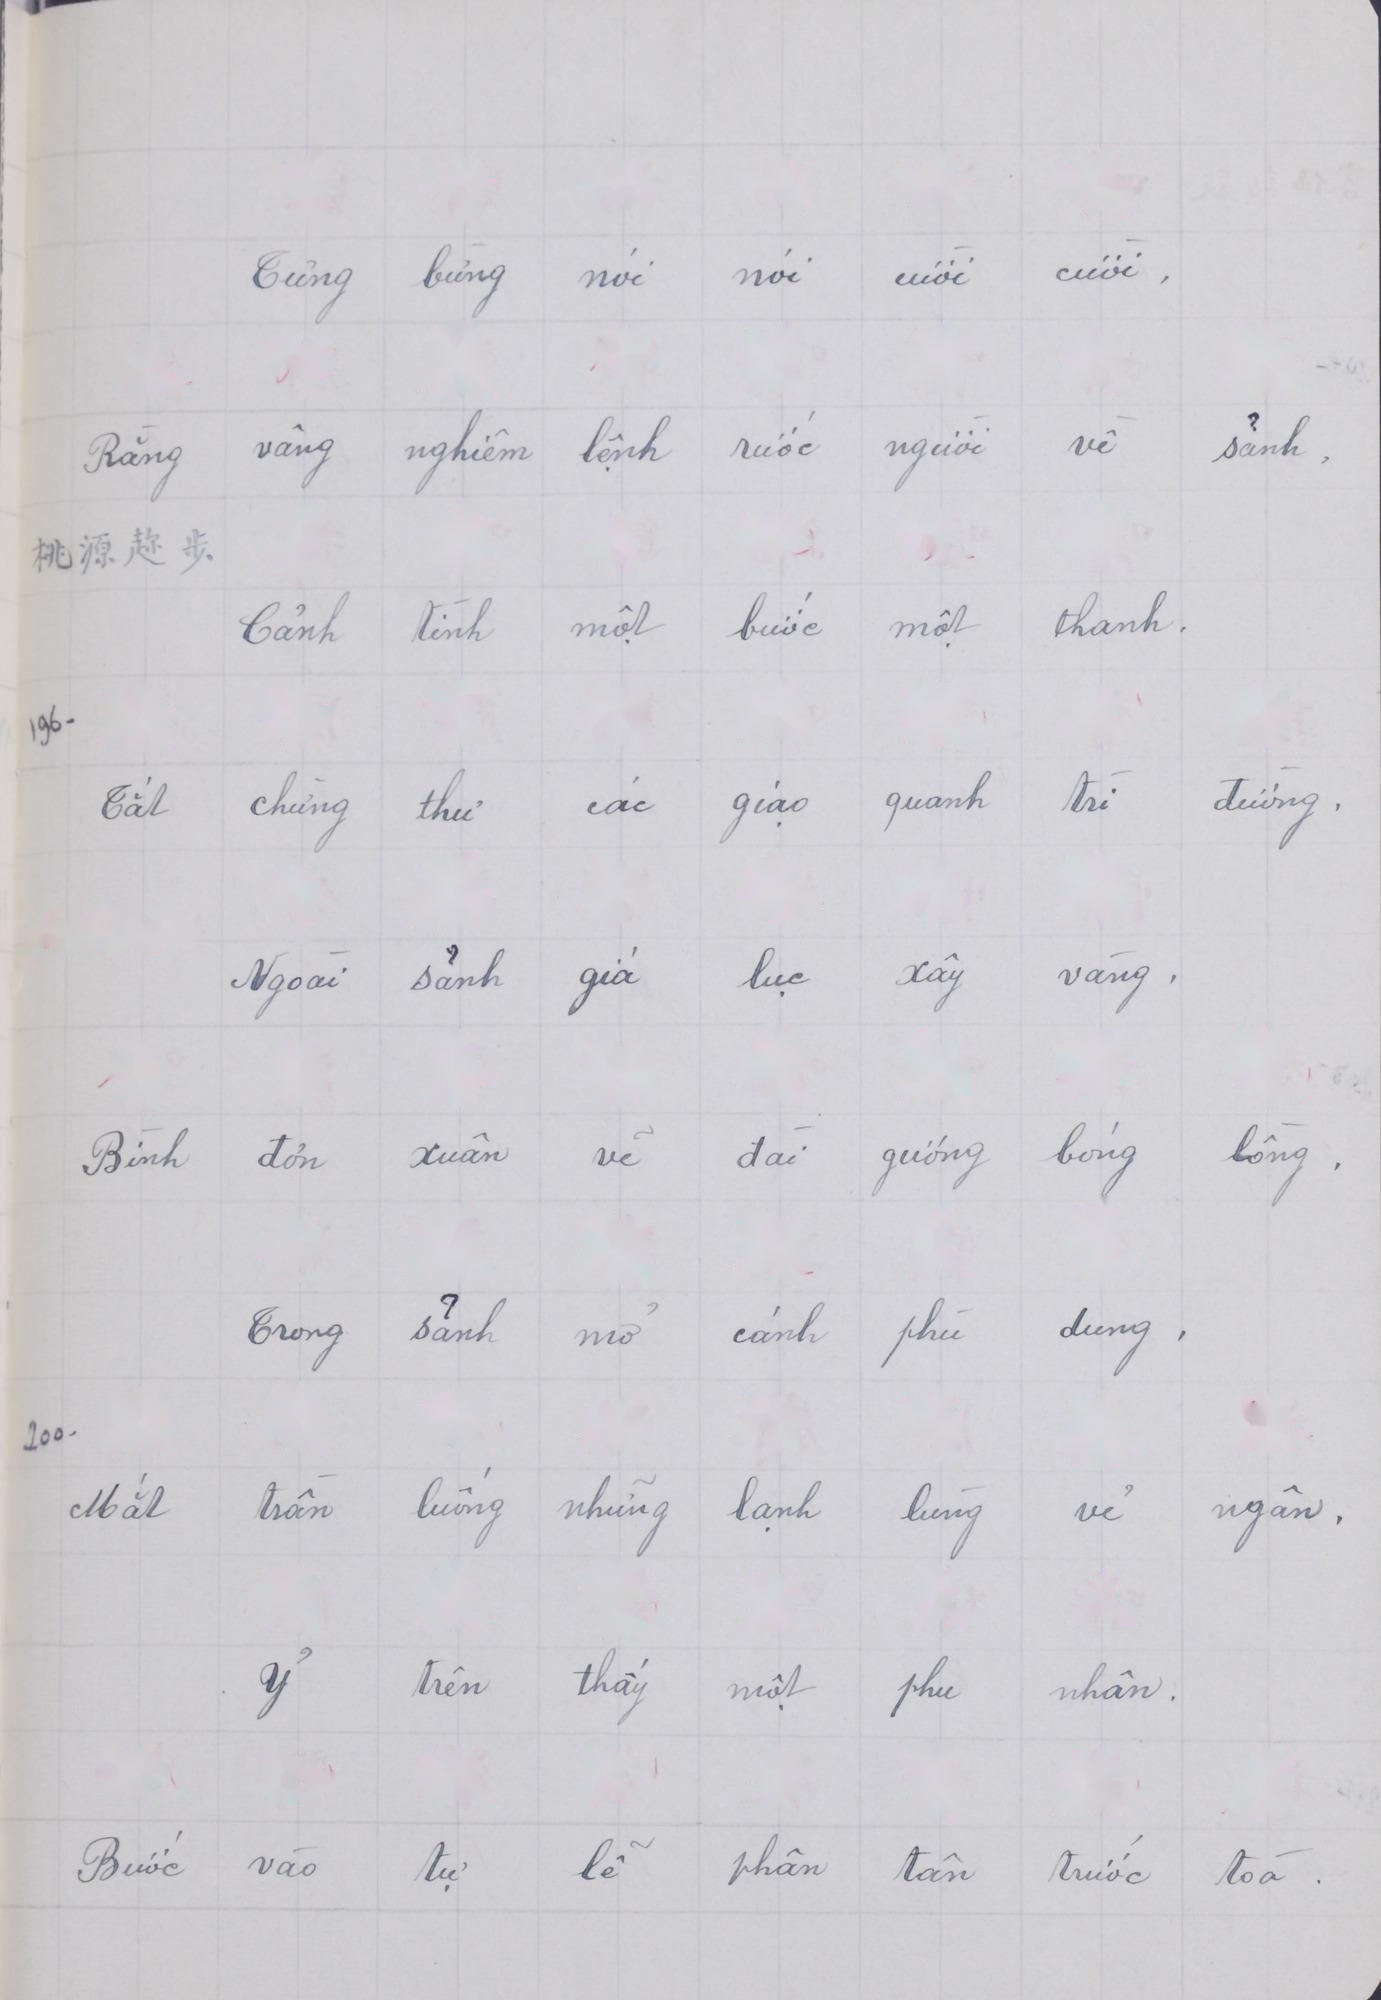 Tưng bừng nói nói cười cười,
Rằng vâng nghiêm lệnh rước người về sảnh,
桃源趂步
Cảnh tình một bước một thanh.
196-
Tắt chừng thư các giạo quanh trì đường,
Ngoài sảnh giá lục xây vàng,
Bình đơn xuân vẽ đài gương bóng lồng,
Trong sảnh mở cánh phù dung,
200-
Mắt trần luống những lạnh lùng vẻ ngân,
Ỷ trên thấy một phu nhân.
Bước vào tự lễ phân tân trước toà.